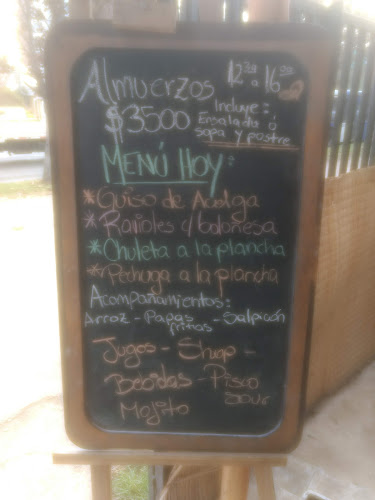 Almuerzos 12:30 a 16:00
$3500 Incluye:
Ensalada ó
sopa y postre
MENÚ HOY:
*Guiso de Acelga
*Ravioles c/ boloñesa
*Chuleta a la plancha
*Pechuga a la plancha
Acompañamientos:
Arroz - Papas fritas - Salpicón
Jugos - Shop -
Bebidas - Pisco Sour
Mojito